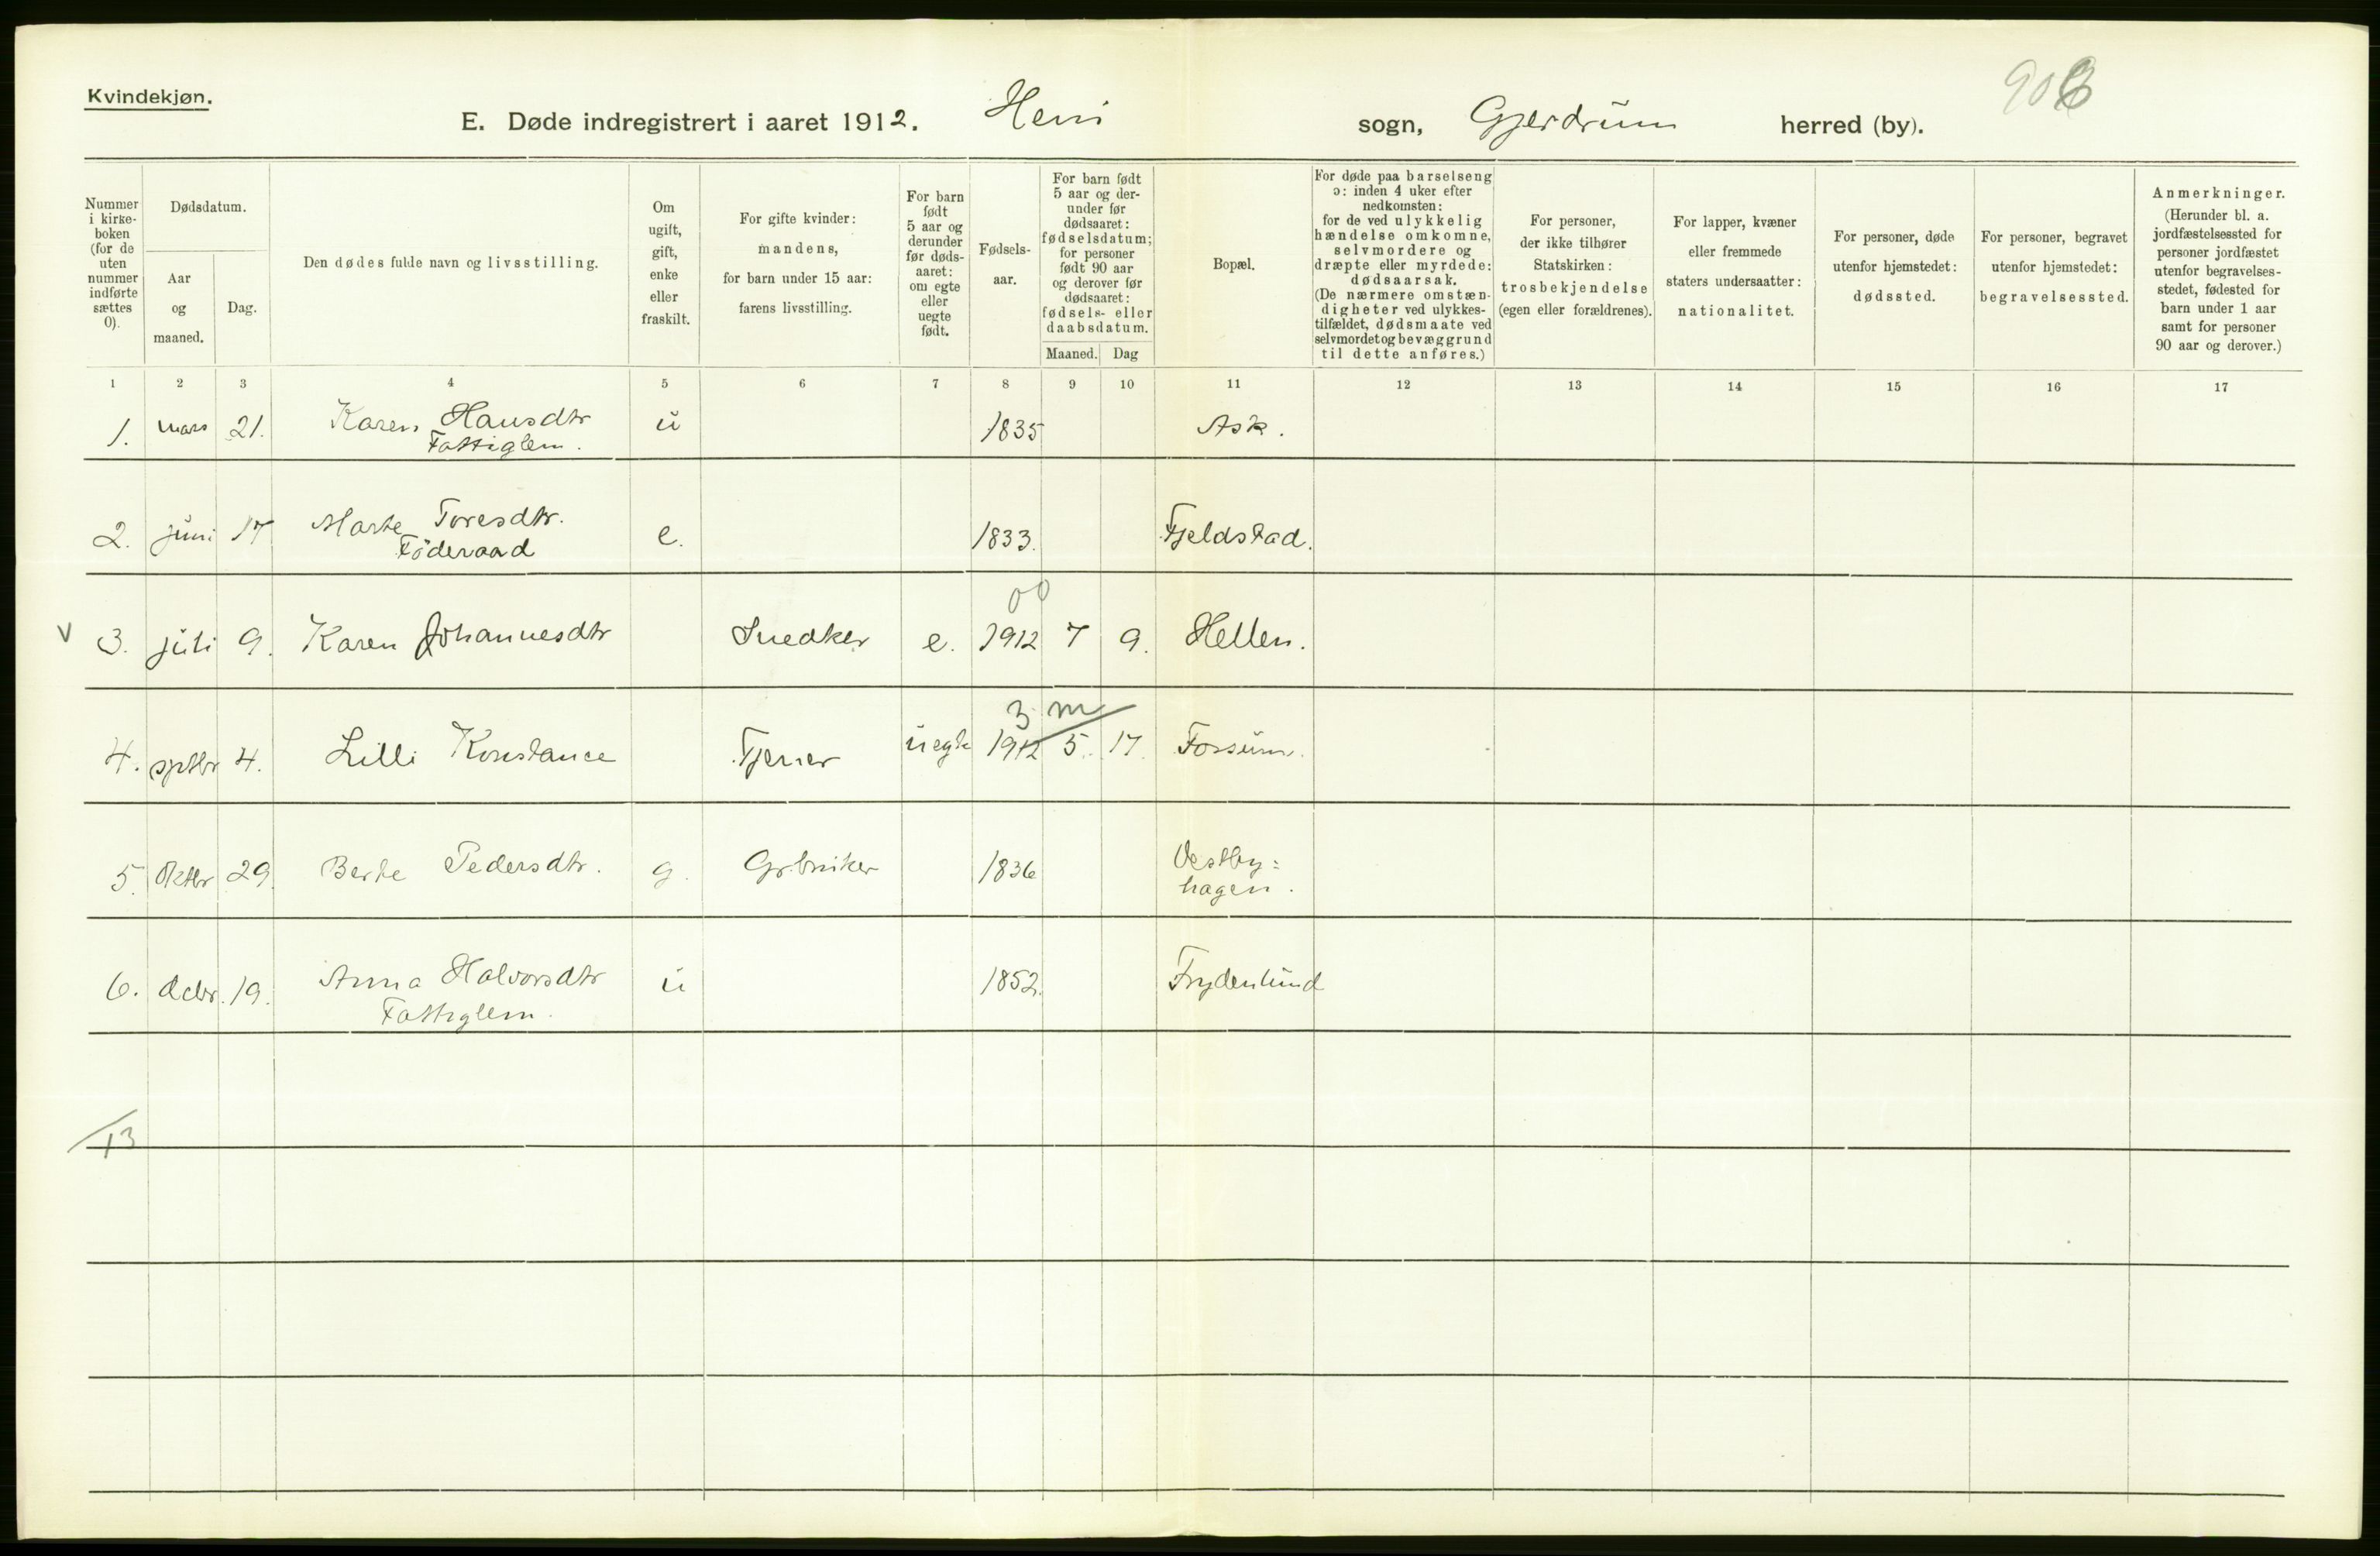 Kvindekjøn.
E. Døde indregistrert i aaret 1912. Heni sogn, Gjerdrum herred (by).
Nummer i kirke- boken (for de uten nummer indførte sættes 0).
Dødsdatum.
Aar og maaned.
Dag.
Den dødes fulde navn og livsstilling.
Om ugift, gift, enke eller fraskilt.
For gifte kvinder: mandens, for barn under 15 aar: farens livsstilling.
For barn født 5 aar og derunder før døds- aaret: om egte eller uegte født.
Fødsels- aar.
For barn født 5 aar og der- under før dødsaaret: fødselsdatum; for personer født 90 aar og derover før dødsaaret: fødsels- eller daabsdatum.
Maaned. Dag
Bopæl.
For døde paa barselseng ɔ: inden 4 uker efter nedkomsten: for de ved ulykkelig hændelse omkomne, selvmordere og dræpte eller myrdede: dødsaarsak. (De nærmere omstæn- digheter ved ulykkes- tilfældet, dødsmaate ved selvmordet og bevæggrund til dette anføres.)
For personer, der ikke tilhører Statskirken: trosbekjendelse (egen eller forældrenes).
For lapper, kvæner eller fremmede staters undersaatter: nationalitet.
For personer, døde utenfor hjemstedet: dødssted.
For personer, begravet utenfor hjemstedet: begravelsessted.
Anmerkninger. (Herunder bl. a. jordfæstelsessted for personer jordfæstet utenfor begravelses- stedet, fødested for barn under 1 aar samt for personer 90 aar og derover.)
1 2 3 4 5 6 7 8 9 10 11 12 13 14 15 16 17
1. mars 21. Karen Hansdtr u 1835 Ask.
Fattiglem.
2. juni 17 Marte Toresdtr. e. 1833. Fjeldstad.
Föderaad
00
v 3. juli 9. Karen Johannesdtr Snedker e. 1912 7 9. Hellen.
3 m
4. sptbr 4. Lilli Konstance Tjener uegte 1912 5. 17. Fossum.
5. Oktbr 29. Berte Pedersdtr. g. Grbruker 1836 Vestby=
hagen.
6. dcbr. 19. Anna Halvorsdtr u 1852. Frydenlund
Fattiglem.
13